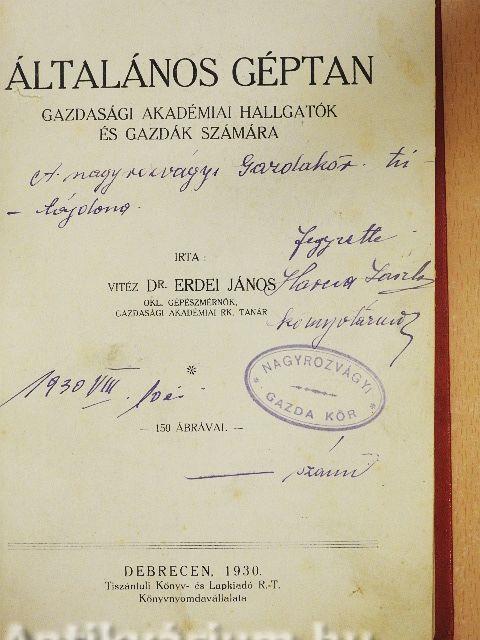 ÁLTALÁNOS GÉPTAN
GAZDASÁGI AKADÉMIAI HALLGATÓK
ÉS GAZDÁK SZÁMÁRA
A nagyrozvágyi Gazdakör tu-
- lajdona.
IRTA :
VITÉZ DR. ERDEI JÁNOS
OKL. GÉPÉSZMÉRNÖK,
GAZDASÁGI AKADÉMIAI RK. TANÁR
Jegyzette
László
könyvtárnok
*
1930 VIII.
* NAGYROZVÁGYI *
GAZDA KÖR
— 150 ÁBRÁVAL. —
szám
DEBRECEN, 1930.
Tiszántuli Könyv- és Lapkiadó R.-T.
Könyvnyomdavállalata
Antikvárium.hu